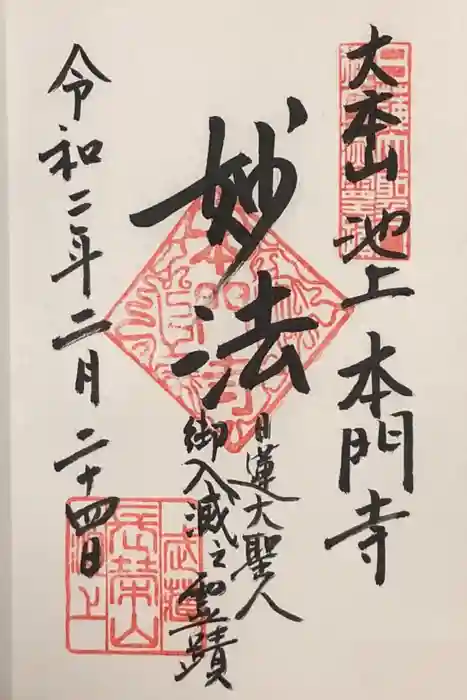 大本山 池上 本門寺
妙法
日蓮大聖人
御入滅之霊蹟
令和二年二月二十四日